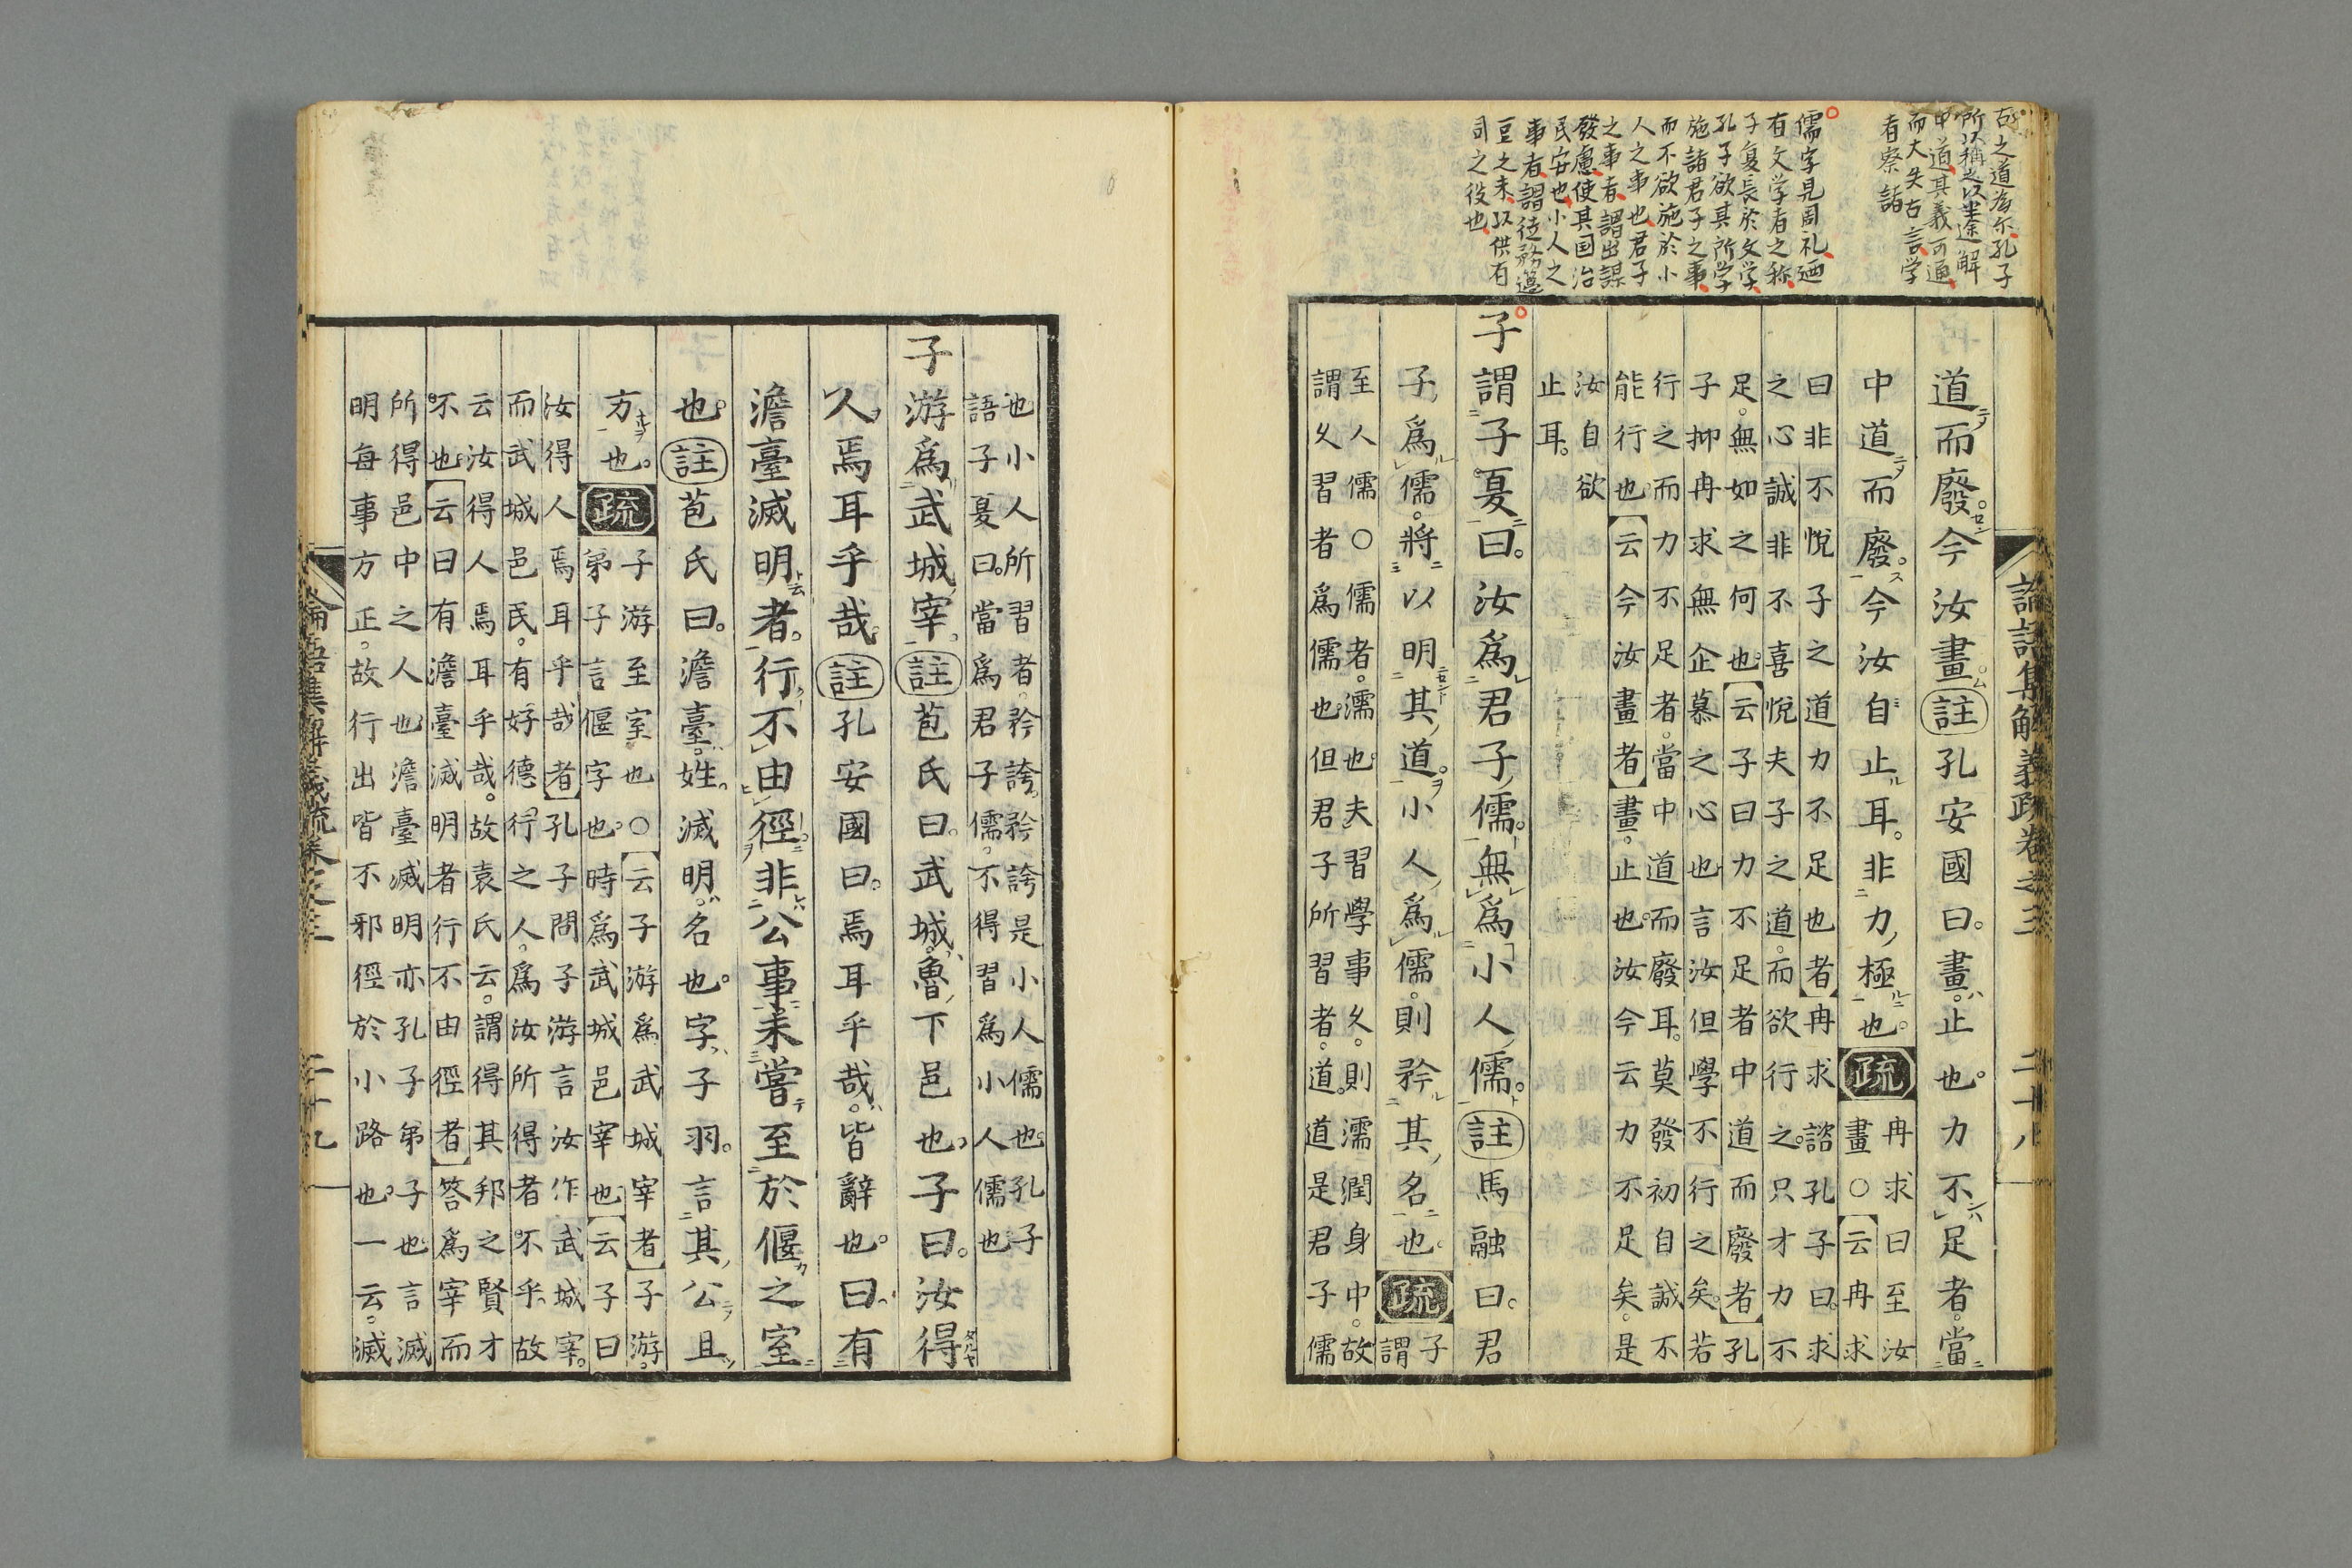 古之道為尓孔子
所以稱之以半途解
中道其義可通
而大失古言学
者察諸
儒字見周礼廼
有文学者之称
子夏長於文学
孔子欲其所学
施諸君子之事
而不欲施於小
人之事也君子
之事者謂出謀
發慮使其国治
民安也小人之
事者謂徒務籩
豆之末以供有
司之役也
論語集解義疏卷之三 二十八
道而廢今汝畫註孔安國曰畫止也力不足者當
中道而廢今汝自止耳非力極也疏冉求曰至汝
畫○云冉求
曰非不悅子之道力不足也者冉求諮孔子曰求
之心誠非不喜悅夫子之道而欲行之只才力不
足無如之何也云子曰力不足者中道而廢者孔
子抑冉求無企慕之心也言汝但學不行之矣若
行之而力不足者當中道而廢耳莫發初自誠不
能行也云今汝畫者畫止也汝今云力不足矣是
汝自欲
止耳
子謂子夏曰汝為君子儒無為小人儒註馬融曰君
子為儒將以明其道小人為儒則矜其名也疏子
謂
至人儒○儒者濡也夫習學事久則濡潤身中故
謂久習者為儒也但君子所習者道道是君子儒
也小人所習者矜誇矜誇是小人儒也孔子
語子夏曰當為君子儒不得習為小人儒也
子游為武城宰註苞氏曰武城魯下邑也子曰汝得
人焉耳乎哉註孔安國曰焉耳乎哉皆辭也曰有
澹臺滅明者行不由徑非公事未嘗至於偃之室
也註苞氏曰澹臺姓滅明名也字子羽言其公且
方也疏子游至室也○云子游為武城宰者子游
弟子言偃字也時為武城邑宰也云子曰
汝得人焉耳乎哉者孔子問子游言汝作武城宰
而武城邑民有好德行之人為汝所得者不乎故
云汝得人焉耳乎哉故袁氏云謂得其邦之賢才
不也云曰有澹臺滅明者行不由徑者答為宰而
所得邑中之人也澹臺滅明亦孔子弟子也言滅
明每事方正故行出皆不邪徑於小路也一云滅
論語集解義疏卷之三 二十九